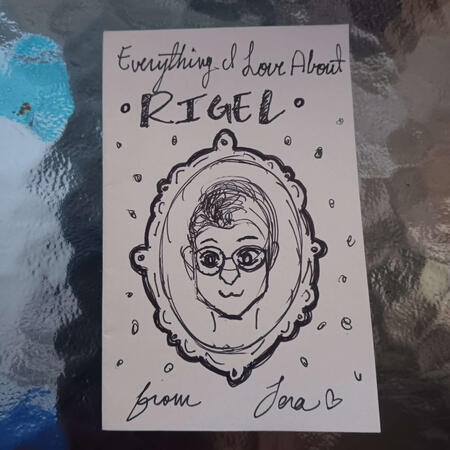 Everything I Love About
• RIGEL •
from Lera ♡